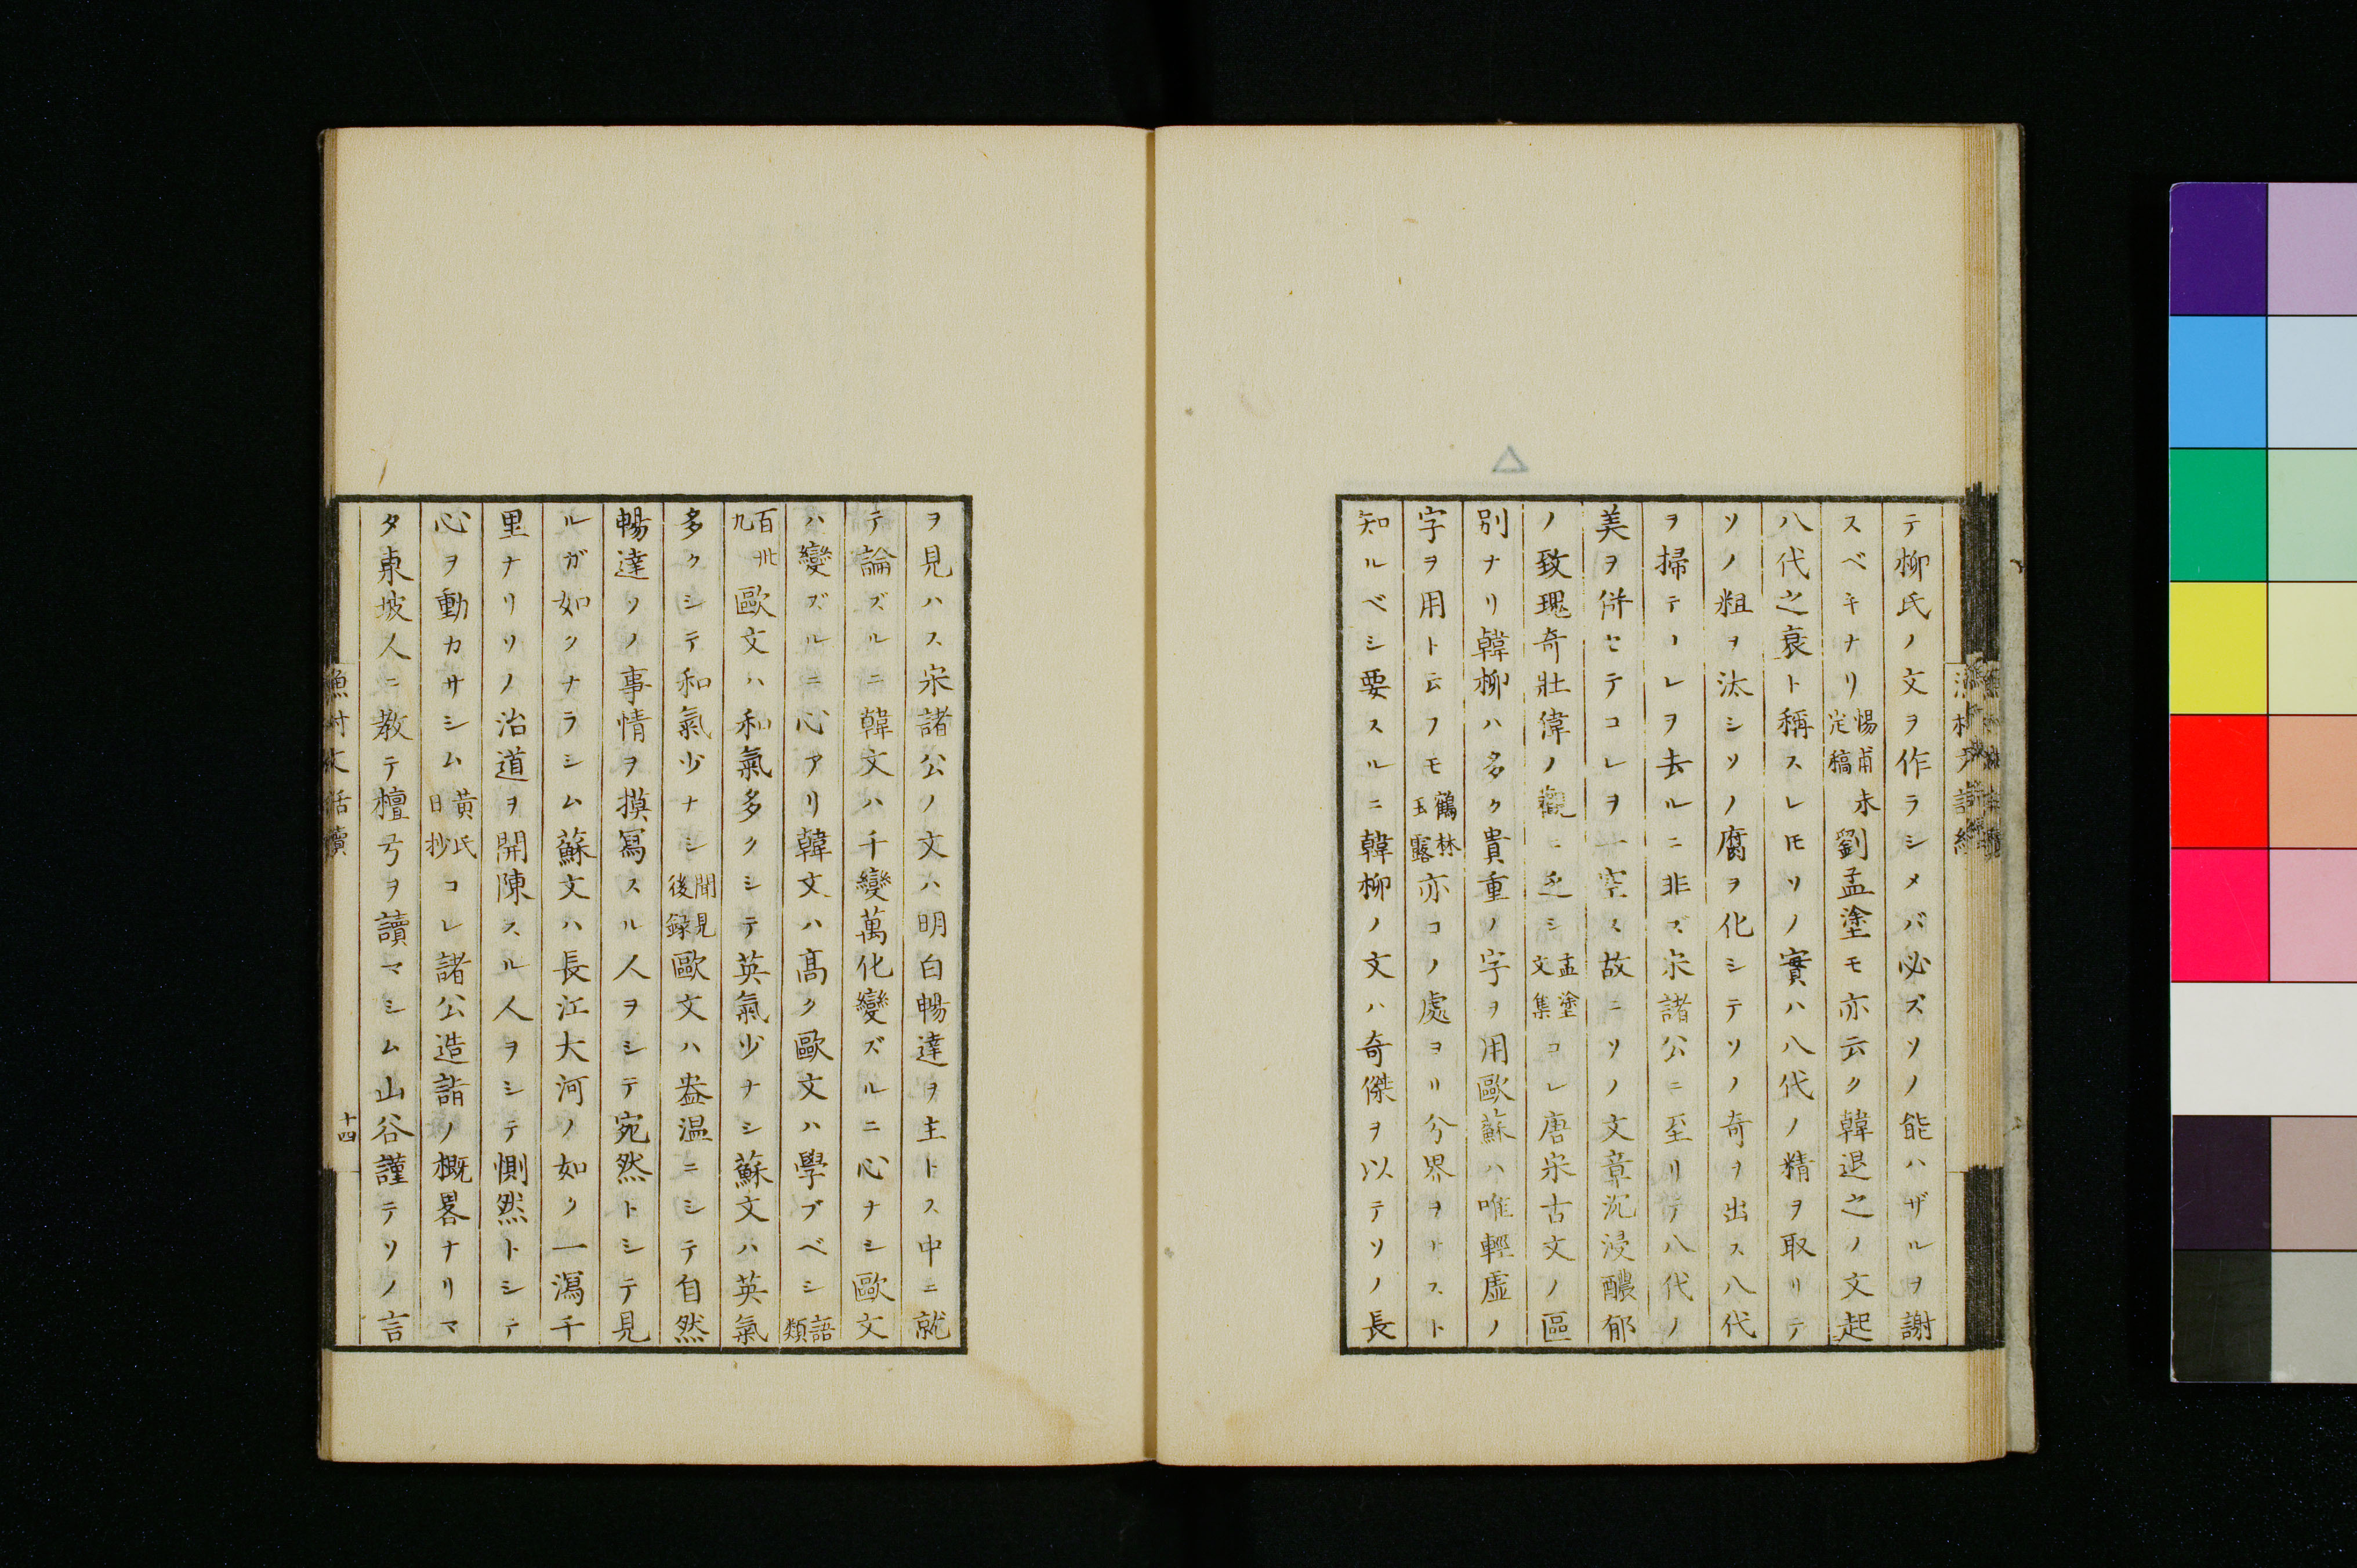 テ柳氏ノ文ヲ作ラシメバ必ズソノ能ハザルヲ謝
スベキナリ惕甫未定稿劉孟塗モ亦云ク韓退之ノ文起
八代之衰ト稱スレ𪜈ソノ實ハ八代ノ精ヲ取リテ
ソノ粗ヲ汰シソノ腐ヲ化シテソノ奇ヲ出ス八代
ヲ掃テコレヲ去ルニ非ズ宋諸公ニ至リテ八代ノ
美ヲ併セテコレヲ一空ス故ニソノ文章沉浸醲郁
ノ致瑰奇壯偉ノ觀ニ乏シ孟塗文集コレ唐宋古文ノ區
別ナリ韓柳ハ多ク貴重ノ字ヲ用歐蘇ハ唯輕虛ノ
字ヲ用ト云フモ鶴林玉露亦コノ處ヨリ分界ヲナスト
知ルベシ要スルニ韓柳ノ文ハ奇傑ヲ以テソノ長
ヲ見ハス宋諸公ノ文ハ明白暢達ヲ主トス中ニ就
テ論ズルニ韓文ハ千變萬化變ズルニ心ナシ歐文
ハ變ズルニ心アリ韓文ハ高ク歐文ハ學ブベシ語類
百卅九歐文ハ和氣多クシテ英氣少ナシ蘇文ハ英氣
多クシテ和氣少ナシ聞見後錄歐文ハ盎温ニシテ自然
暢達ソノ事情ヲ摸寫スル人ヲシテ宛然トシテ見
ルガ如クナラシム蘇文ハ長江大河ノ如ク一瀉千
里ナリソノ治道ヲ開陳スル人ヲシテ惻然トシテ
心ヲ動カサシム黃氏日抄コレ諸公造詣ノ概畧ナリマ
タ東坡人ニ教テ檀弓ヲ讀マシム山谷謹テソノ言
漁村文話續
十四